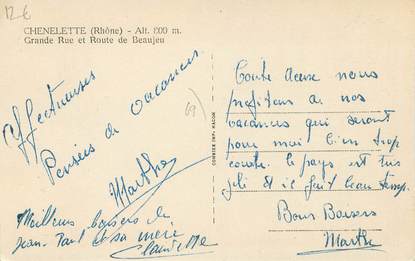 12 €
CHENELETTE (Rhône) - Alt. 600 m.
Grande Rue et Route de Beaujeu
Affectueuses
Pensées de vacances
Marthe
Meilleurs baisers de
Jean-Paul et sa mère
Claudette
69
COMBIER IMP. MACON
Toute deux nous
profitons de nos
vacances qui seront
pour moi bien trop
courte. le pays est très
joli et il fait beau temps
Bons Baisers
Marthe